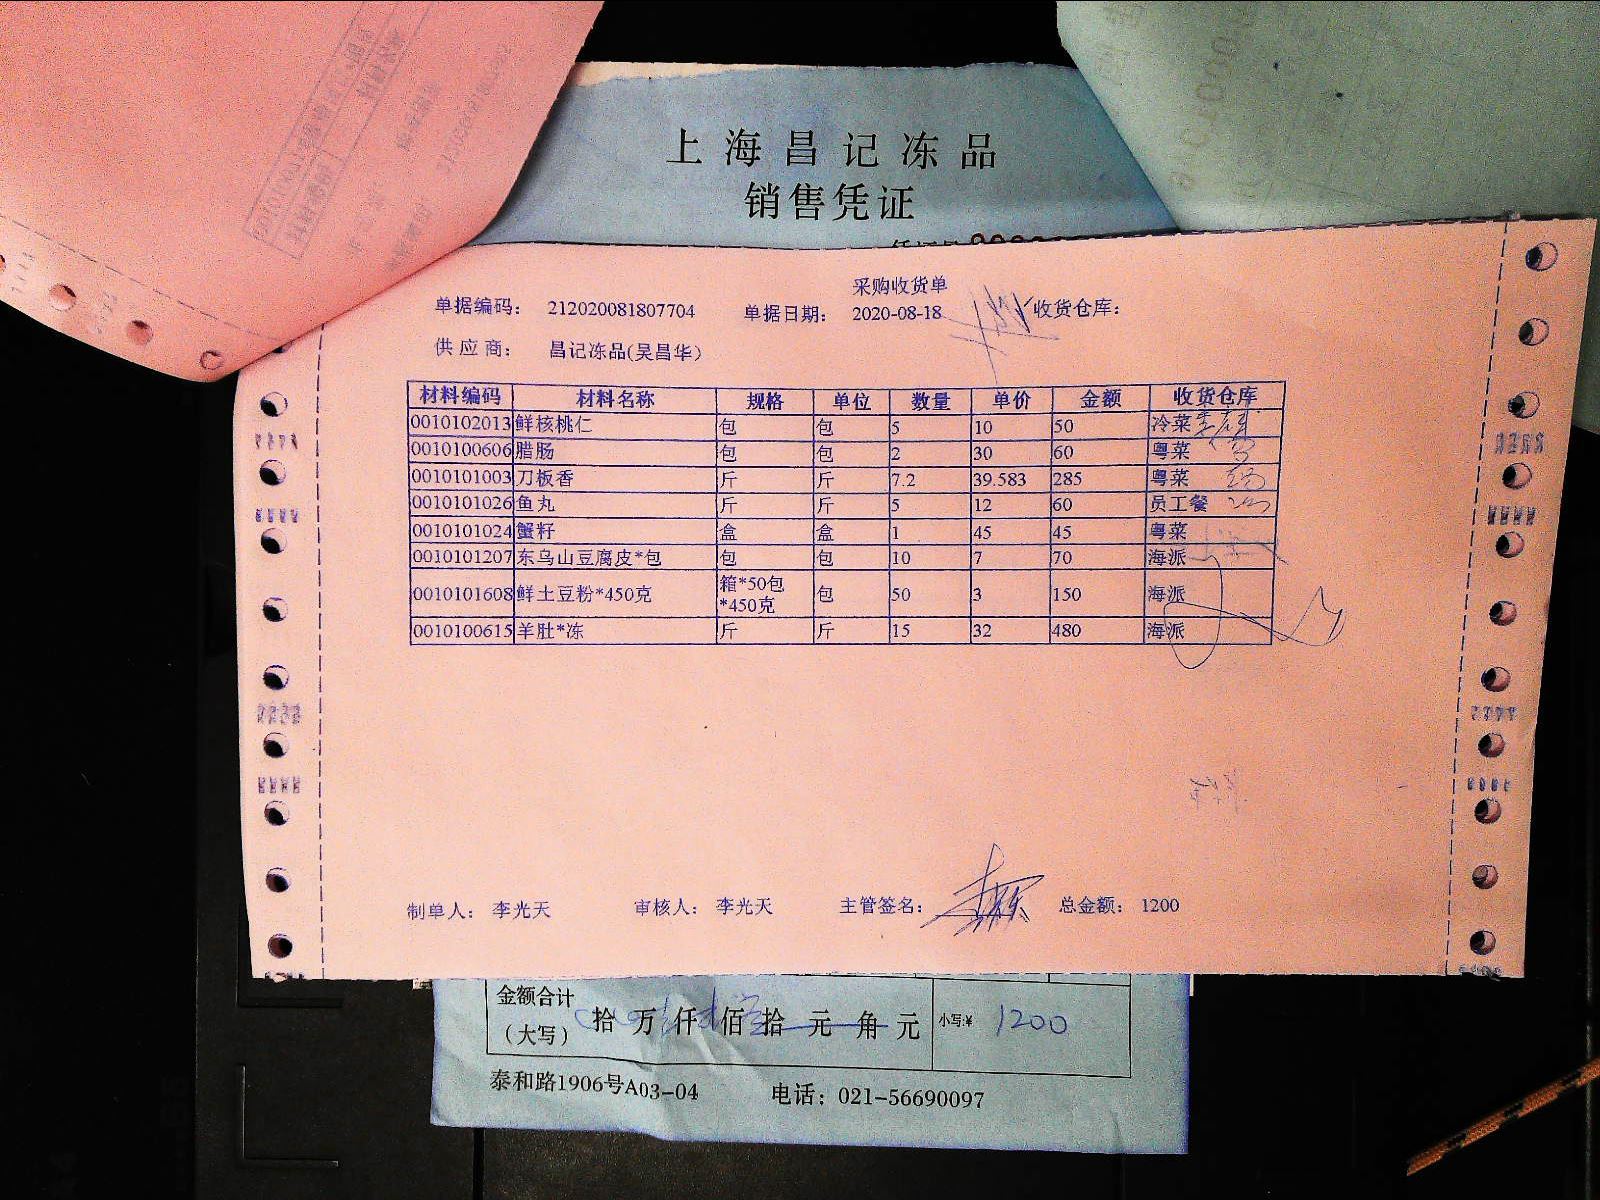 上海昌记冻品
销售凭证
采购收货单
单据编码: 212020081807704 单据日期: 2020-08-18 收货仓库:
供应商: 昌记冻品(吴昌华)
材料编码 材料名称 规格 单位 数量 单价 金额 收货仓库
0010102013 鲜核桃仁 包 包 5 10 50 冷菜
0010100606 腊肠 包 包 2 30 60 粤菜
0010101003 刀板香 斤 斤 7.2 39.583 285 粤菜
0010101026 鱼丸 斤 斤 5 12 60 员工餐
0010101024 蟹籽 盒 盒 1 45 45 粤菜
0010101207 东乌山豆腐皮*包 包 包 10 7 70 海派
0010101608 鲜土豆粉*450克 箱*50包*450克 包 50 3 150 海派
0010100615 羊肚*冻 斤 斤 15 32 480 海派
制单人: 李光天 审核人: 李光天 主管签名: 总金额: 1200
金额合计
(大写) 拾万仟佰拾元角元 小写:¥ 1200
泰和路1906号A03-04 电话: 021-56690097